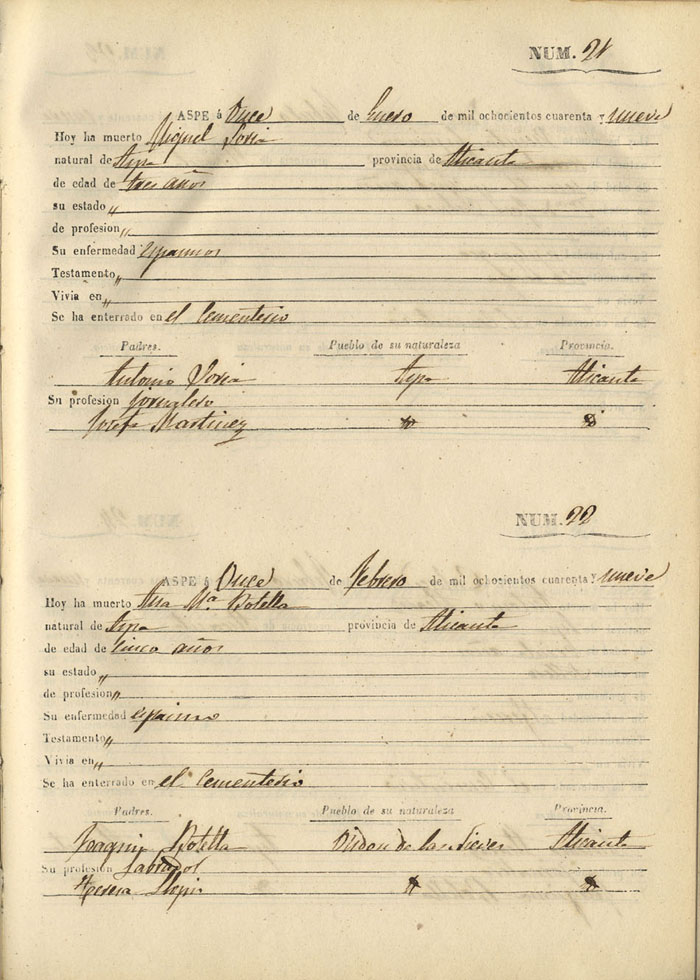 NUM. 21
ASPE á Once de Enero de mil ochocientos cuarenta y nueve
Hoy ha muerto Miguel Soria
natural de Aspe provincia de Alicante
de edad de tres años
su estado „
de profesion „
Su enfermedad espasmos
Testamento „
Vivia en „
Se ha enterrado en el Cementerio
Padres. Pueblo de su naturaleza Provincia.
Antonio Soria Aspe Alicante
Su profesion Jornalero
Josefa Martinez
NUM. 22
ASPE á Once de Febrero de mil ochocientos cuarenta y nueve
Hoy ha muerto Ana Mª Botella
natural de Aspe provincia de Alicante
de edad de cinco años
su estado „
de profesion „
Su enfermedad espasmo
Testamento „
Vivia en „
Se ha enterrado en el Cementerio
Padres. Pueblo de su naturaleza Provincia.
Joaquin Botella Hondon de las Nieves Alicante
Su profesion Labrador
Teresa